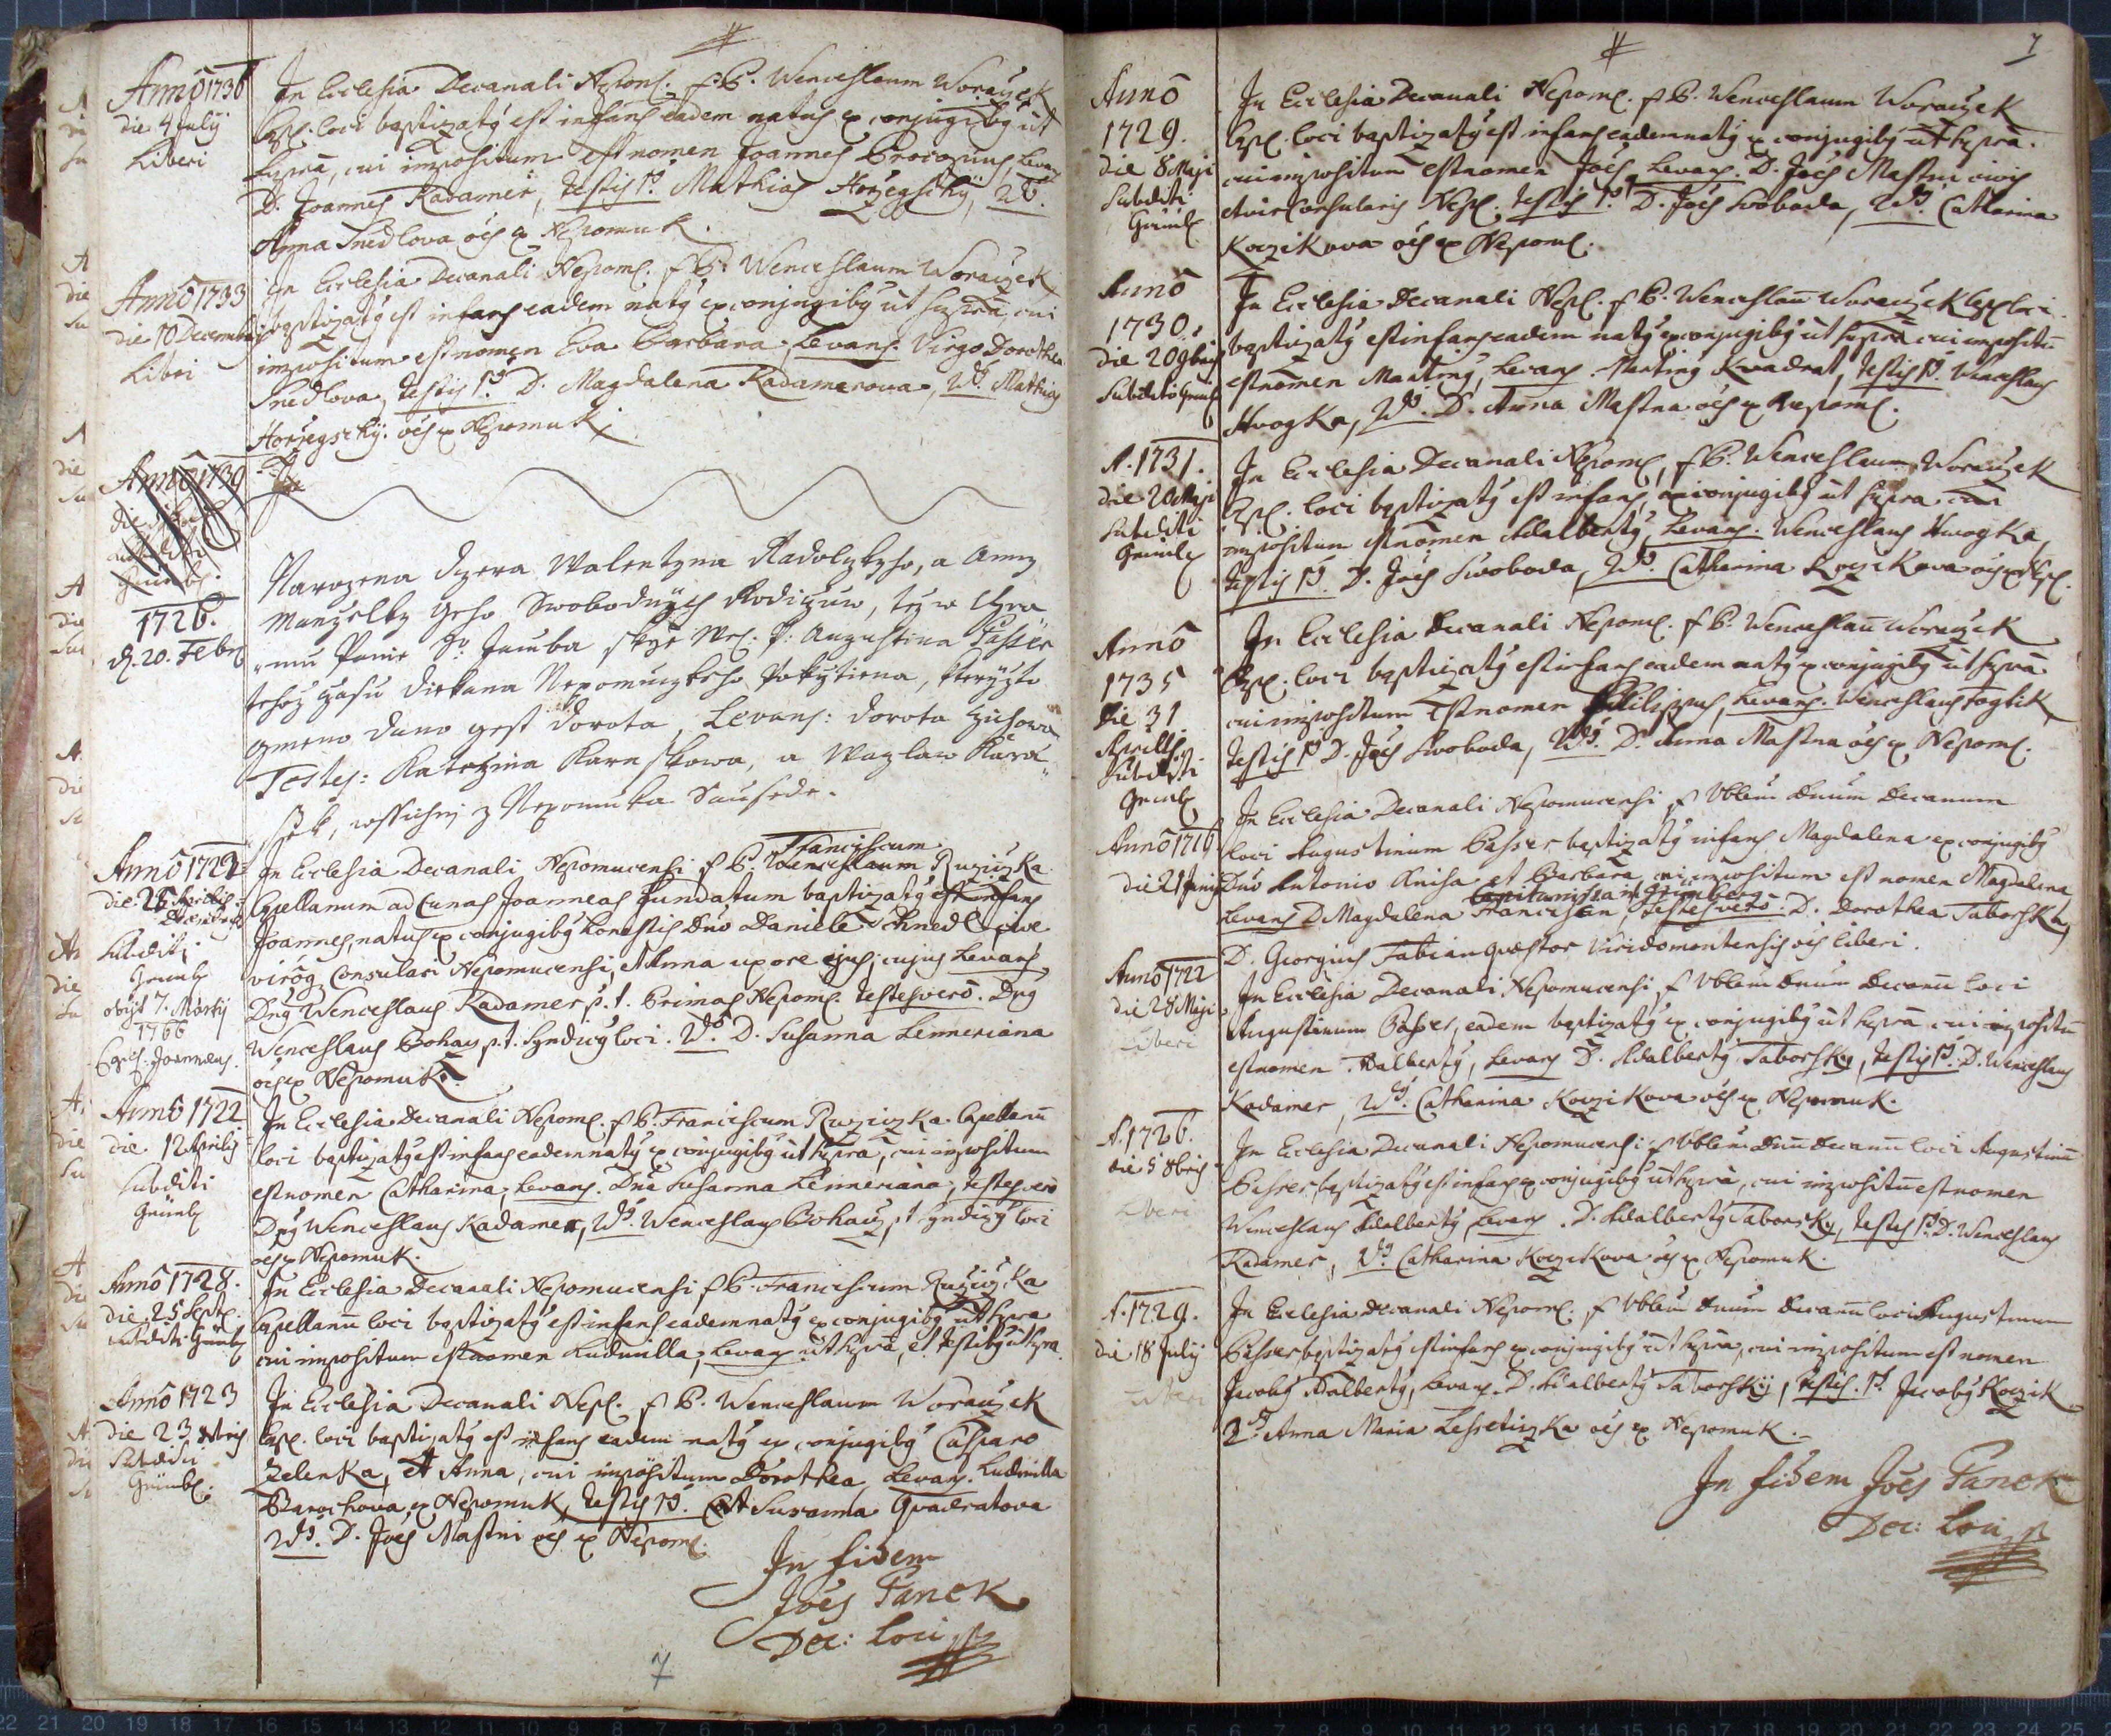 Anno 1736
die 4 July
Liberi
In Ecclesia Decanali Nepom. p P. Wenceslaum Woraczek
Capl. loci baptizatq est infans eadem natus ex conjugibq ut
supra, cui impositum est nomen Joannes Procopius, Levans
D. Joannes Kadamer, Testis 1q. Mathias Horzegschy, 2q.
Anna Snedlova oes ex Nepomuk.
Anno 1733
die 10 Decembris
Liberi
In Ecclesia Decanali Nepom. p P. Wenceslaum Woraczek
baptizatq est infans eadem natq ex conjugibq ut supra, cui
impositum est nomen Eva Barbara, Levans. Virgo Dorothea
Snedlova, Testis 1q. D. Magdalena Kadamerova, 2dq. Mathias
Horzegschy. oes ex Nepomuk.
Anno 1739
1726.
d. 20. Febr
Narozena dczera Walentyna Radolzkyho, a Anny
Manzelky geho Swobodnych Rodiczuw, tez w Chra
mu Panie S. Jakuba skrze Wel. P: Augustina Passer
tehoz czasu Diekana Nepomuczkeho Pokrztiena, kteryzto
gmeno dano gest Dorota, Levans: Dorota
Testes: Katerzina Karaskowa, a Waczlaw Kara
sek, wssichni z Nepomuka Sausede.
Anno 1721
die 25 Aprilis
Subditi
Grünb
obijt 7. Martij
1766
Capel. Joannens.
Franciscum
In Ecclesia Decanali Nepomucensi p P. Wenceslaum Ruziczka
Capellanum ad Cunas Joanneas fundatum baptizatq est infans
Joannes, natus ex conjugibq honestis Dno Daniele Schnedl cive
viroq Consulari Nepomucensi, et Anna uxore ejus, cujus Levans
Dnq Wenceslaus Kadamer p. t. Primas Nepom. Testes vero. Dnq
Wenceslaus Bohacz p. t. Syndicq loci. 2dq. D. Susanna Lenneriana
oes ex Nepomuk.
Anno 1722
die 12 Aprilis
Subditi
Grünb
In Ecclesia Decanali Nepom. p P. Franciscum Ruziczka Capellanu
loci baptizatq est infans eadem natq ex conjugibq ut supra, cui impositum
est nomen Catharina, Levans. Dna Susanna Lenneriana, Testes vero
Dnq Wenceslaus Kadamer, 2dq. Wenceslaus Bohacz p. t. Syndicq loci
oes ex Nepomuk.
Anno 1728.
die 25 Sept.
Subditi Grünb
In Ecclesia Decanali Nepomucensi p P. Franciscum Ruziczka
Capellanu loci baptizatq est infans eadem natq ex conjugibq ut supra
cui impositum est nomen Ludmilla, Levans ut supra, et testibq ut supra.
Anno 1723
die 23
Subditi
Grünb.
In Ecclesia Decanali Nep. p P. Wenceslaum Woraczek
Capl. loci baptizatq est infans eadem natq ex conjugibq Casparo
Zelenka, et Anna, cui impositum Dorothea, Levans. Ludmilla
Barochova, ex Nepomuk, Testis 1q. Susanna Quadratova
2dq. D. Joes Mastni oes ex Nepom.
In fidem
Joes Panek
Dec: Loci
7
7
Anno
1729.
die 8 Maji
Subditi
Grünb
In Ecclesia Decanali Nepom. p P. Wenceslaum Woraczek
Capl. loci baptizatq est infans eadem natq ex conjugibq ut supra.
cui impositum est nomen Joes, Levans. D. Joes Mastni civis
et vir Consularis Nep. Testis 1q. D. Joes Svoboda, 2dq. Catharina
Koczikova oes ex Nepom.
Anno
1730.
die 20 9bris
Subditi Grünb
In Ecclesia Decanali Nep. p P. Wenceslau Woraczek Capl loci
baptizatq est infans eadem natq ex conjugibq ut supra cui impositu
est nomen Martinq, Levans. Martinq Kvadrat, Testis 1q. Wenceslaus
Hvogka, 2dq. D. Anna Mastna oes ex Nepom.
A. 1731.
die 20 Maji
Subditi
Grünb
In Ecclesia Decanali Nepom, p P. Wenceslaum Woraczek
Capl. loci baptizatq est infans, ex conjugibq ut supra. cui
impositum est nomen Adalbertq, Levans. Wenceslaus Hwogka,
Testis 1q. D. Joes Swoboda, 2dq. Catharina Koczikova oes ex Nep.
Anno
1735
die 31
Aprilis
Subditi
Grünb
In Ecclesia Decanali Nepom. p P. Wenceslau Woraczek
Capl. loci baptizatq est infans eadem natq ex conjugibq ut supra
cui impositum est nomen Philippus, Levans. Wenceslaus Fogtik,
Testis 1q D. Joes Svoboda, 2dq. D. Anna Mastna oes ex Nepom.
Anno 1716
die 21 Junij
In Ecclesia Decanali Nepomucensi p Vbleum Dnum Decanum
loci Augustinum Passer baptizatq infans Magdalena ex conjugibq
Dno Antonio Knisa et Barbara, cui impositum est nomen Magdalena
Capitanissa in Grünberg
Levans D Magdalena Testes vero. D. Dorothea Taborska,
D. Georgius Fabian Quaestor Viridomontensis oes liberi.
Anno 1722
die 28 Maji
Liberi
In Ecclesia Decanali Nepomucensi p Vbleum Dnum Decanu loci
Augustinum Passer, eadem baptizatq ex conjugibq ut supra cui impositu
est nomen Adalbertq, Levans D. Adalbertq Taborsky, Testis 1q. D. Wenceslaus
Kadamer, 2dq. Catharina Koczikova oes ex Nepomuk.
A. 1726.
die 5 8bris
Liberi
In Ecclesia Decanali Nepomucensi p Vbleum Dnu Decanu loci Augustinu
Passer, baptizatq est infans ex conjugibq ut supra, cui impositu est nomen
Wenceslaus Adalbertq, Levans. D. Adalbertq Taborsky, Testes 1q. D. Wenceslaus
Kadamer, 2dq Catharina Koczikova oes ex Nepomuk.
A. 1729.
die 18 July
Liberi
In Ecclesia Decanali Nepom. p Vbleum Dnum Decanu loci Augustinum
Passer, baptizatq est infans ex conjugibq ut supra, cui impositum est nomen
Jacobq Adalbertq, Levans. D. Adalbertq Taborskij, Testis. 1q. Jacobq Koczik
2dq Anna Maria Lessetizka oes ex Nepomuk.
In fidem Joes Panek
Dec: Loci